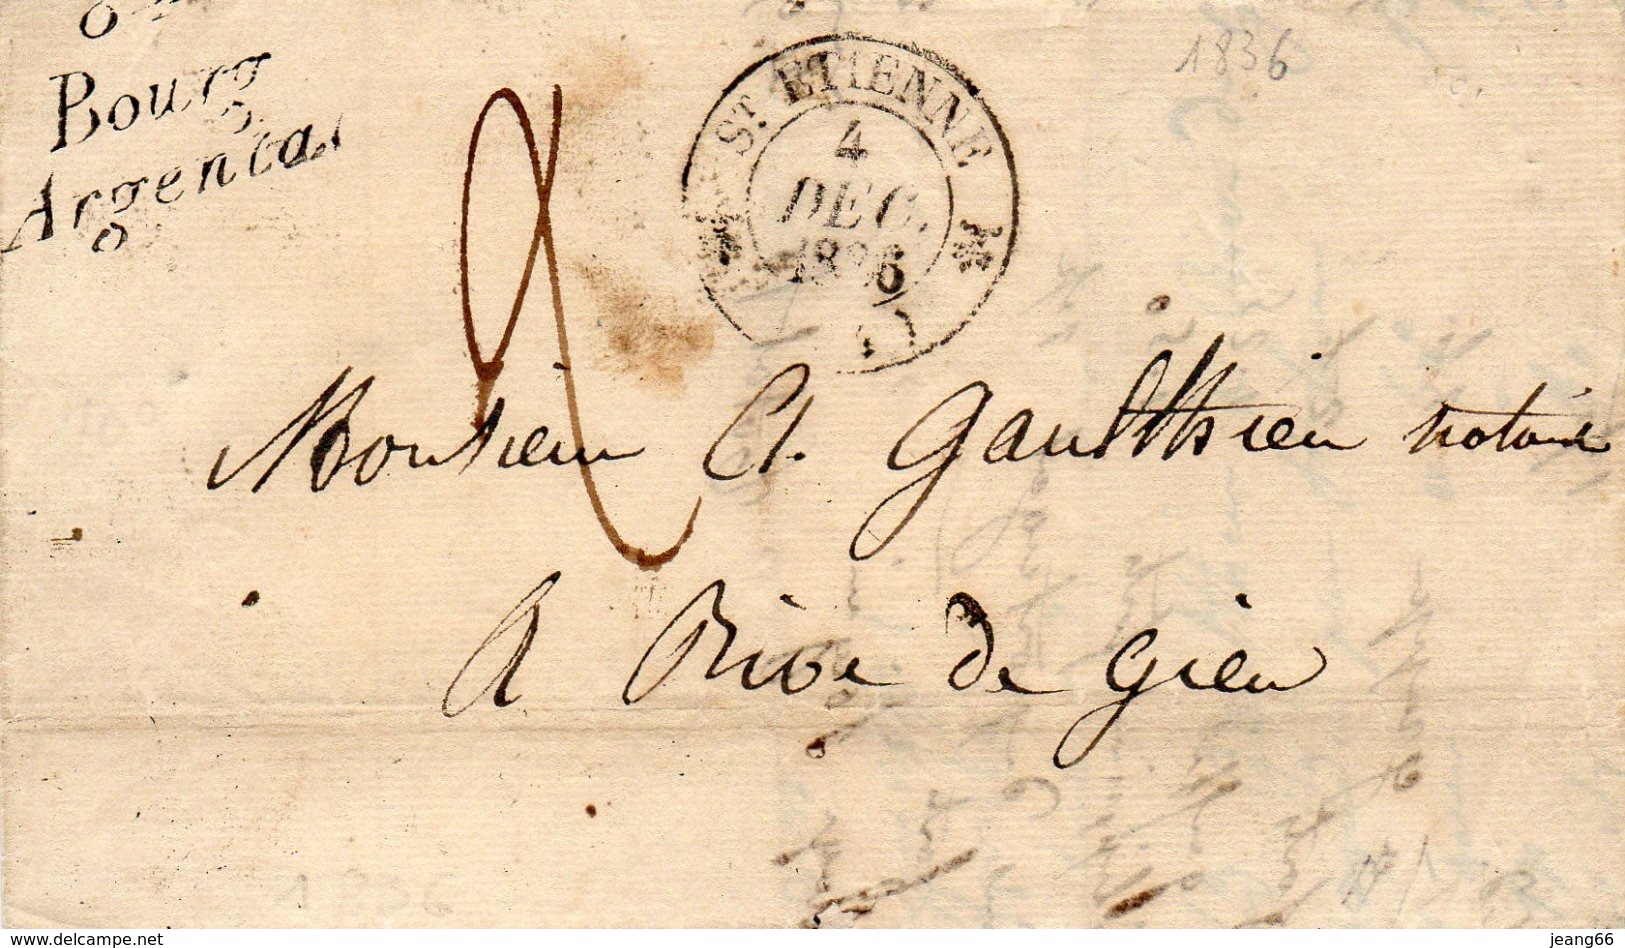 Bourg
Argental
1836
ST. ETIENNE
4
DEC.
1836
2
Monsieur Cl. Gaulthier notaire
A Rive de Gier
1836
www.delcampe.net
jeang66